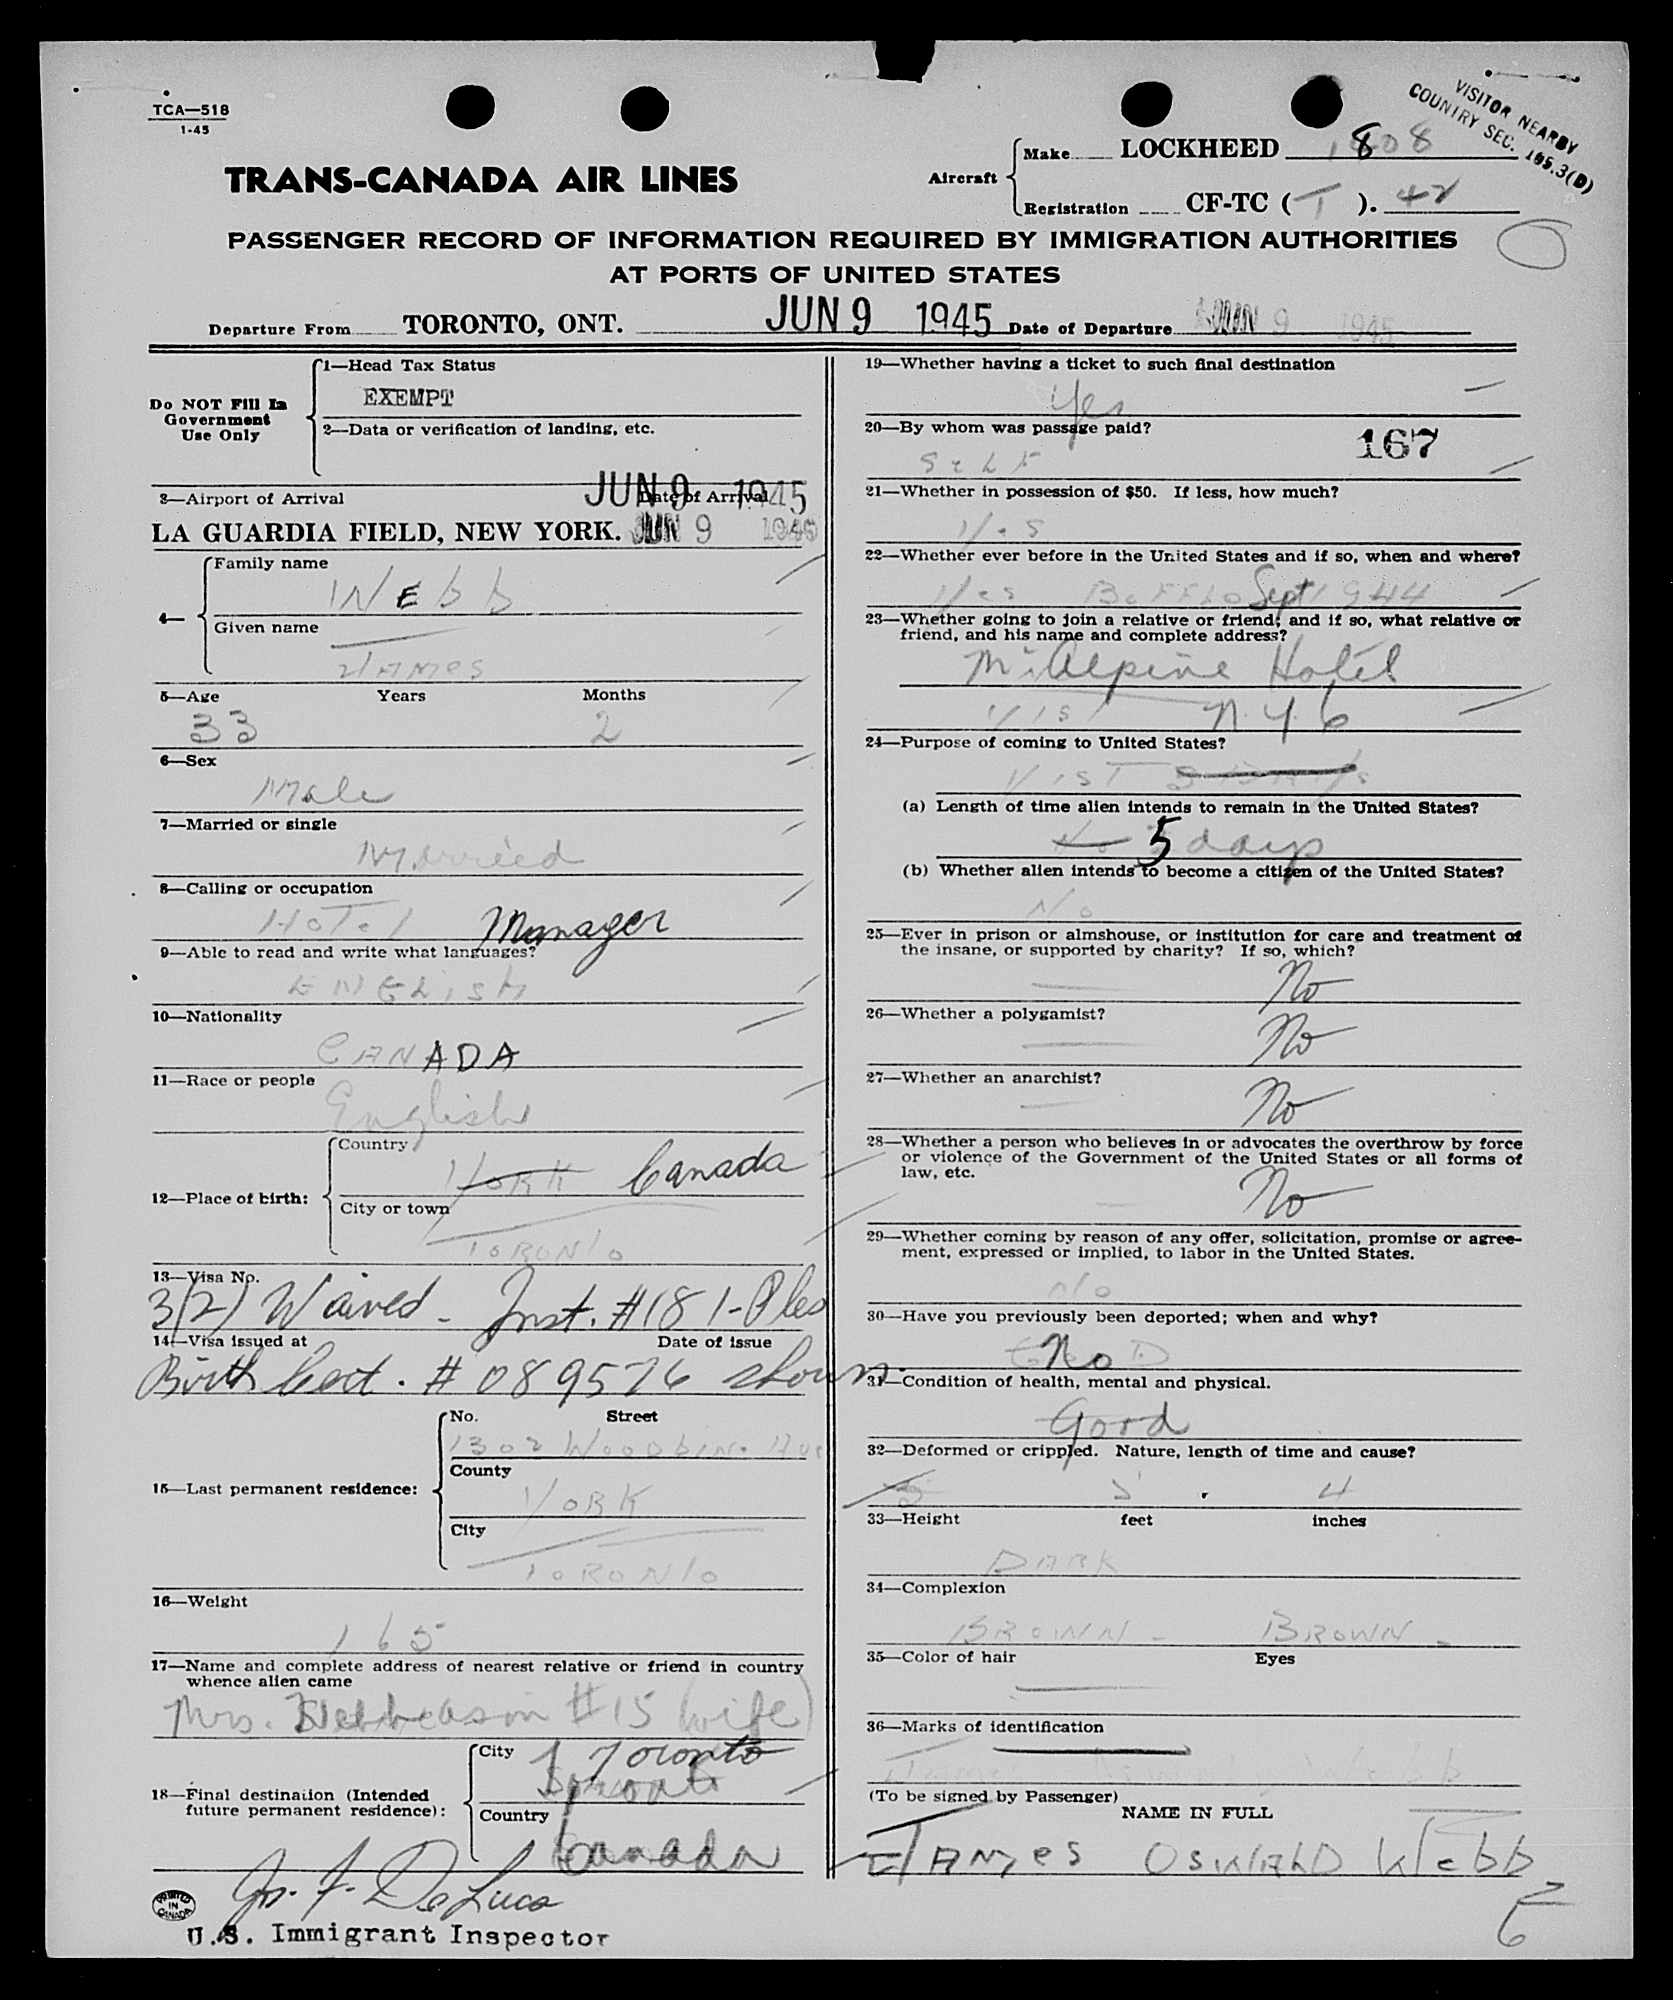 TCA—518
1-45
VISITOR NEARBY
COUNTRY SEC. 165.3(D)
TRANS-CANADA AIR LINES
Aircraft
Make LOCKHEED 1808
Registration CF-TC ( T ). 42
PASSENGER RECORD OF INFORMATION REQUIRED BY IMMIGRATION AUTHORITIES
AT PORTS OF UNITED STATES
Departure From TORONTO, ONT. JUN 9 1945 Date of Departure JUN 9 1945
Do NOT Fill In
Government
Use Only
1—Head Tax Status
EXEMPT
2—Data or verification of landing, etc.
3—Airport of Arrival JUN 9 1945 Date of Arrival
LA GUARDIA FIELD, NEW YORK. JUN 9 1945
4—
Family name
WEbb
Given name
JAMES
5—Age Years Months
33 2
6—Sex
Male
7—Married or single
Married
8—Calling or occupation
HoTel Manager
9—Able to read and write what languages?
ENGLISH
10—Nationality
CANADA
11—Race or people
English
12—Place of birth:
Country
YORK Canada
City or town
TORONTO
13—Visa No.
3(2) Waived - Inst. #181-Pleo
14—Visa issued at Date of issue
Birth Cert. # 089576 shown.
15—Last permanent residence:
No. Street
1302 WOODbINe Ave
County
YORK
City
TORONTO
16—Weight
165
17—Name and complete address of nearest relative or friend in country
whence alien came
Mrs. #15 (wife)
18—Final destination (Intended
future permanent residence):
City Toronto
Country
Canada
Jos. F. DeLuca
U.S. Immigrant Inspector
PRINTED IN CANADA
19—Whether having a ticket to such final destination
Yes
20—By whom was passage paid?
167
SeLF
21—Whether in possession of $50. If less, how much?
Yes
22—Whether ever before in the United States and if so, when and where?
Yes BoFFLO Sept 1944
23—Whether going to join a relative or friend; and if so, what relative or
friend, and his name and complete address?
McAlpine Hotel
VisT N.Y.C
24—Purpose of coming to United States?
VisT
(a) Length of time alien intends to remain in the United States?
5 days
(b) Whether alien intends to become a citizen of the United States?
No
25—Ever in prison or almshouse, or institution for care and treatment of
the insane, or supported by charity? If so, which?
No
26—Whether a polygamist?
No
27—Whether an anarchist?
No
28—Whether a person who believes in or advocates the overthrow by force
or violence of the Government of the United States or all forms of
law, etc.
No
29—Whether coming by reason of any offer, solicitation, promise or agree-
ment, expressed or implied, to labor in the United States.
No
30—Have you previously been deported; when and why?
No
31—Condition of health, mental and physical.
Good
32—Deformed or crippled. Nature, length of time and cause?
5 5 . 4
33—Height feet inches
DARK
34—Complexion
BROWN - BROWN -
35—Color of hair Eyes
36—Marks of identification
(To be signed by Passenger)
NAME IN FULL
JAMES OSWALD Webb